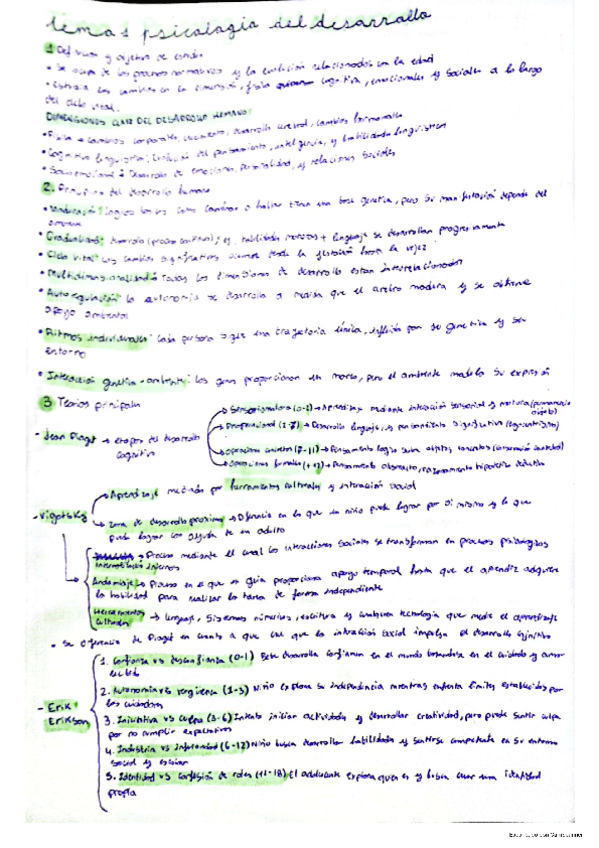 Tema 1 psicología del desarrollo
1. Definición y objetivo de estudio
• Se ocupa de los procesos normativos y la evolución relacionados con la edad
• Estudia los cambios en la dimensión física cognitiva, emocionales y sociales a lo largo
del ciclo vital.
DIMENSIONES CLAVE DEL DESARROLLO HUMANO:
• Física → cambios corporales, crecimiento, desarrollo cerebral, cambios hormonales
• Cognitivo lingüística: Evolución del pensamiento, inteligencia, y habilidades lingüísticas
• Socioemocional: Desarrollo de emociones, personalidad, y relaciones sociales
2. Principios del desarrollo humano
• Maduración: como caminar o hablar tienen una base genética, pero su manifestación depende del
• Gradualidad: desarrollo (proceso continuo); ej, habilidades motoras + lenguaje se desarrollan progresivamente
• Ciclo Vital: Los cambios significativos ocurren desde la gestación hasta la vejez
• Multidimensionalidad: Todas las dimensiones de desarrollo están interrelacionadas
• Autorregulación: la autonomía se desarrolla a medida que el cerebro madura y se obtiene
apoyo ambiental
• Ritmos individuales: Cada persona sigue una trayectoria única, por su genética y su
entorno
• Interacción genética-ambiente: los genes proporcionan un marco, pero el ambiente modela su expresión
3. Teorías principales
- Jean Piaget → etapas del desarrollo cognitivo
Sensoriomotora (0-2) → Aprendizaje mediante interacción sensorial y motora (permanencia objeto)
Preoperacional (2-7) → Desarrollo lenguaje, y pensamiento (egocentrismo)
Operaciones concretas (7-11) → Pensamiento lógico sobre objetos concretos (conservación cantidad)
Operaciones formales (+12) → Pensamiento abstracto, razonamiento hipotético deductivo
- Vigotsky
→ Aprendizaje mediado por herramientas culturales y interacción social
→ Zona de desarrollo próximo → Diferencia en lo que un niño puede lograr por si mismo y lo que
puede lograr con ayuda de un adulto
→ Proceso mediante el cual las interacciones sociales se transforman en procesos psicológicos
internos
Andamiaje → Proceso en el que un guía proporciona apoyo temporal hasta que el aprendiz adquiere
la habilidad para realizar la tarea de forma independiente
Herramientas culturales → lenguaje, sistemas numéricos, escritura y cualquier tecnología que medie el aprendizaje
• Se diferencia de Piaget en cuanto a que cree que la interacción social impulsa el desarrollo cognitivo
- Erik Erikson
1. Confianza vs desconfianza (0-1) Bebé desarrolla confianza en el mundo basandose en el cuidado y amor
recibido
2. Autonomía vs vergüenza (1-3) Niño explora su independencia mientras enfrenta límites establecidos por
los cuidadores
3. Iniciativa vs culpa (3-6) Intenta iniciar actividades y desarrollar creatividad, pero puede sentir culpa
por no cumplir expectativas
4. Industria vs inferioridad (6-12) Niño busca desarrollar habilidades y sentirse competente en su entorno
social y escolar
5. Identidad vs confusión de roles (12-18) El adolescente explora quien es y busca crear una identidad
propia